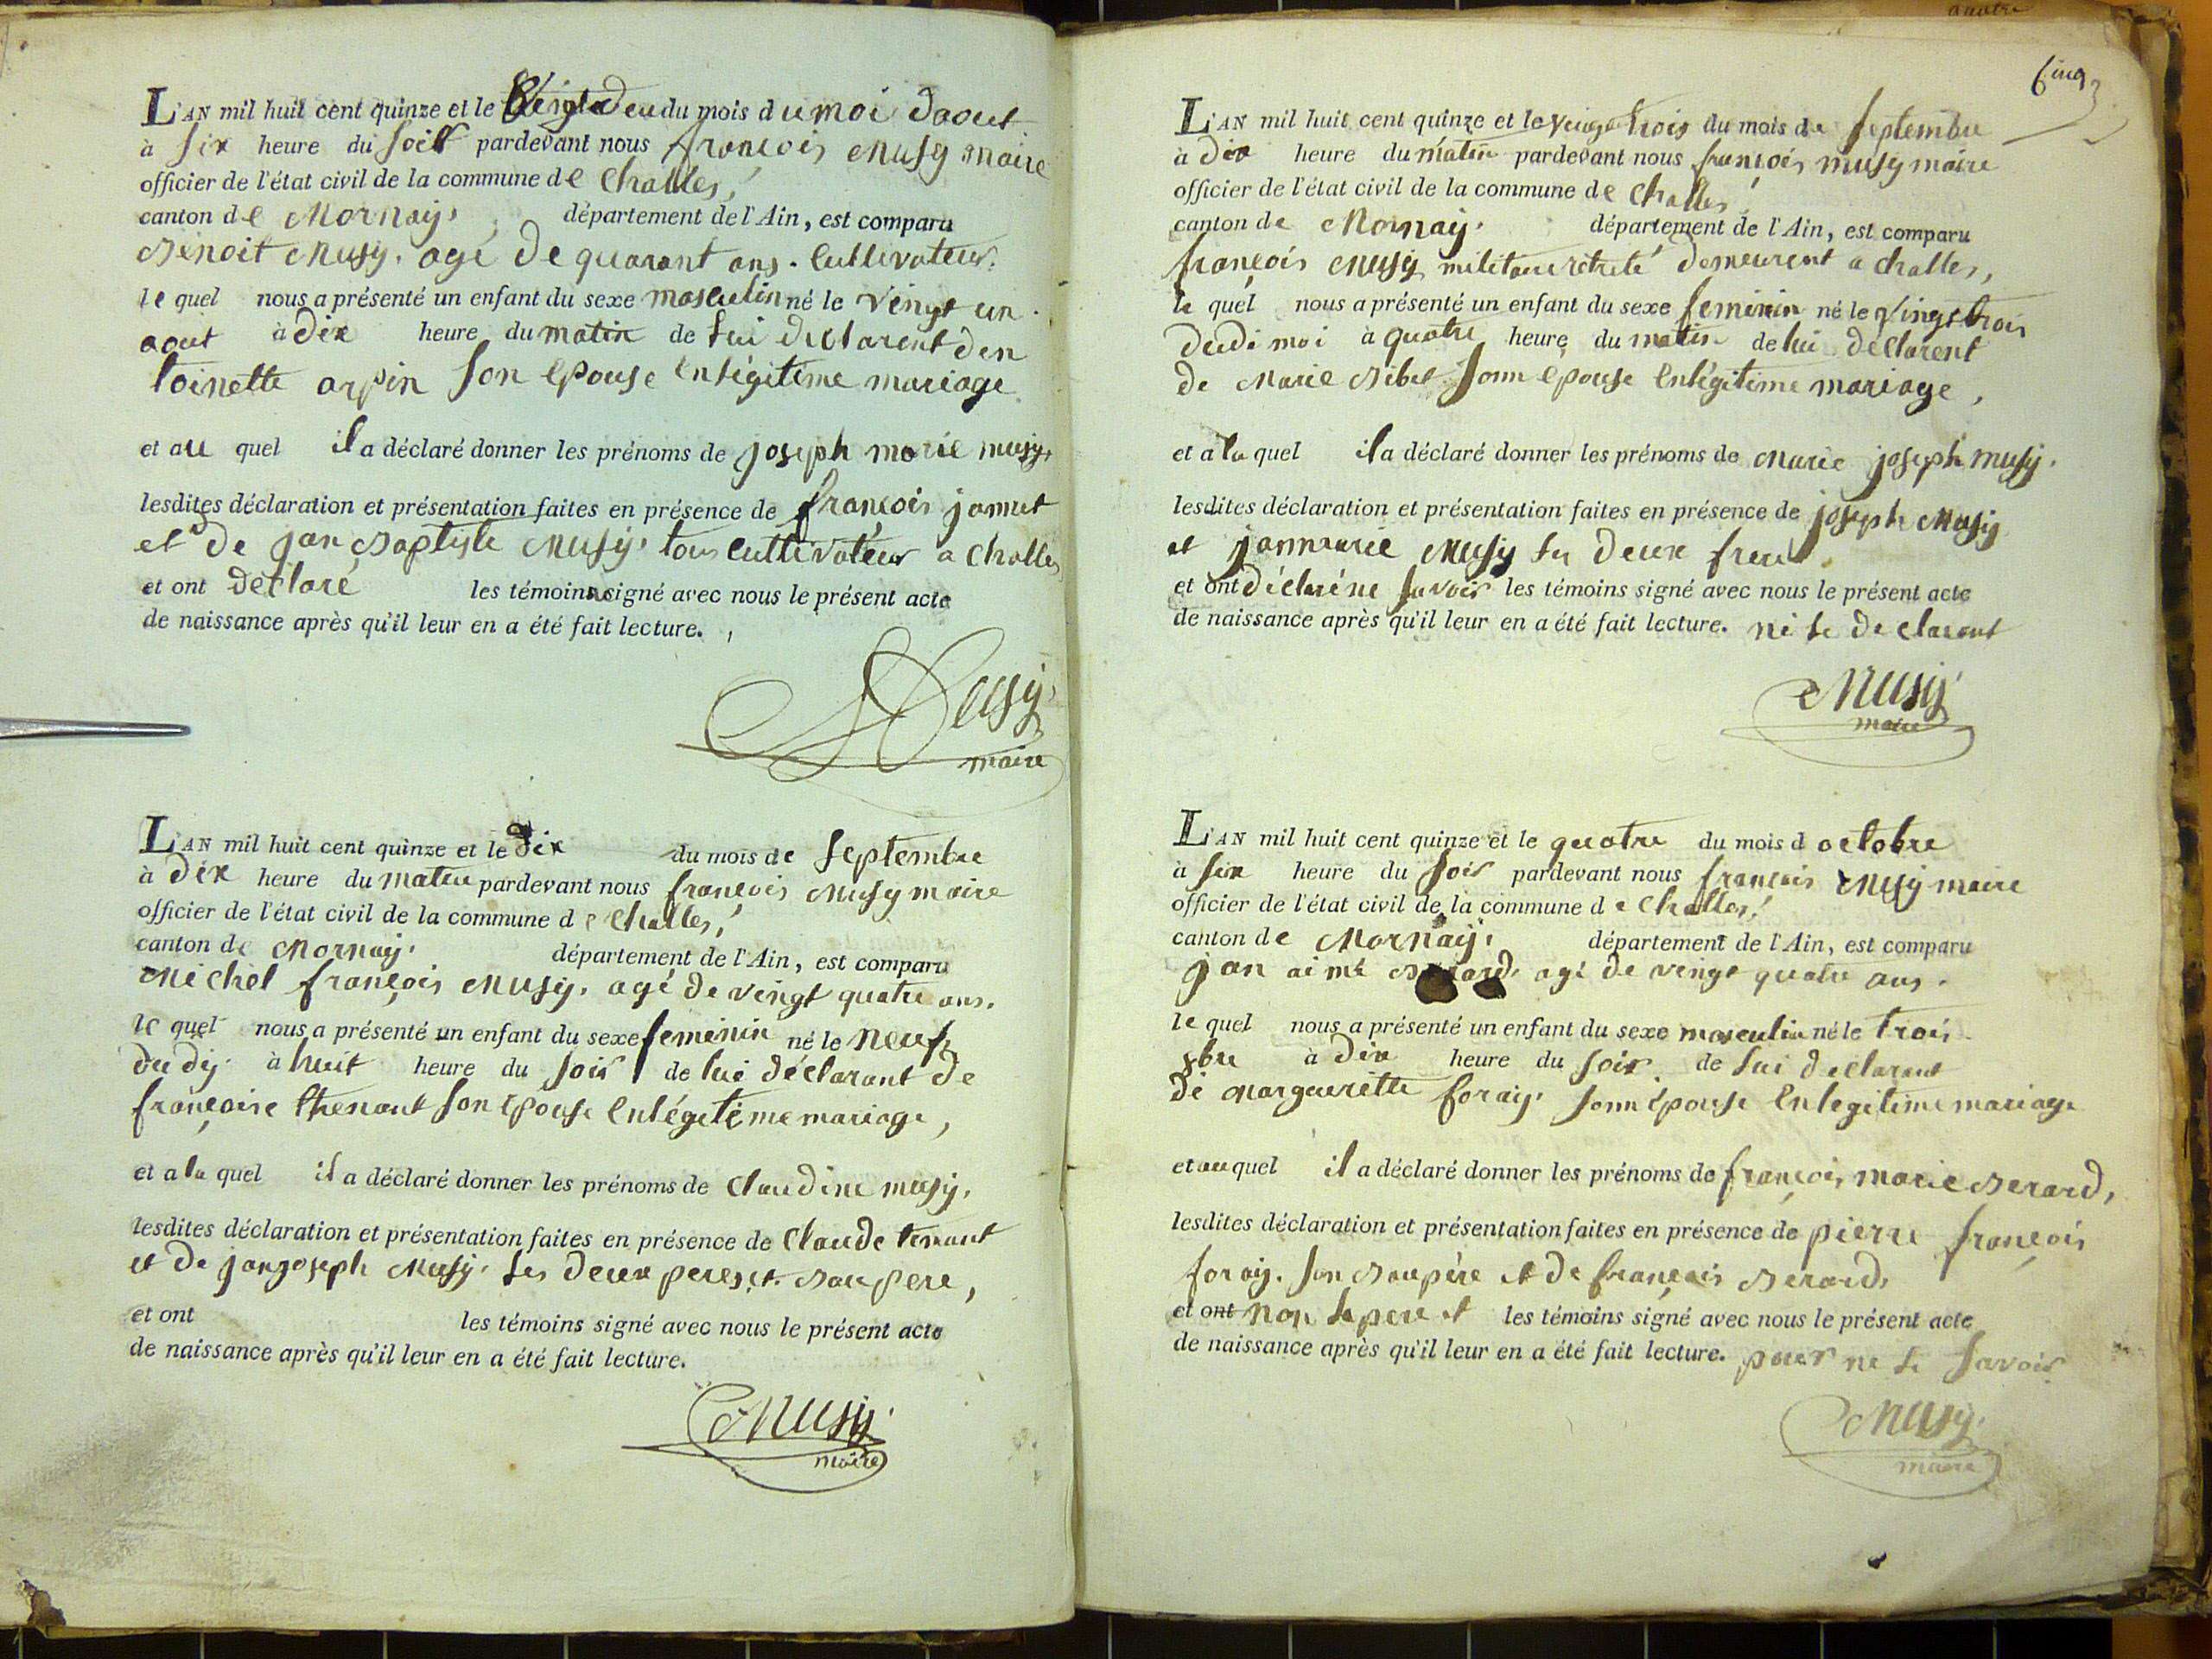 L'AN mil huit cent quinze et le Veingtdeu du mois du moi daout
à six heure du soir pardevant nous françois Musy maire
officier de l'état civil de la commune de Challes,
canton de Mornay, département de l'Ain, est comparu
Benoit Musy. agé de quarant ans. Cultivateur.
le quel nous a présenté un enfant du sexe masculin né le vingt un
aout à dix heure du matin de lui declarent den
toinette arpin son epouse en légitime mariage
et au quel il a déclaré donner les prénoms de joseph marie musy,
lesdites déclaration et présentation faites en présence de françois jannet
et de jan Baptiste Musy, tous cultivateur a Challes
et ont declaré les témoins signé avec nous le présent acte
de naissance après qu'il leur en a été fait lecture.
Musy
maire
L'AN mil huit cent quinze et le dix du mois de septembre
à dix heure du matin pardevant nous françois Musy maire
officier de l'état civil de la commune de Challes,
canton de Mornay. département de l'Ain, est comparu
Michel françois Musy. agé de vingt quatre ans.
le quel nous a présenté un enfant du sexe feminin né le neuf
du dy à huit heure du soir de lui déclarant de
françoise thenant son epouse en légitime mariage,
et a la quel il a déclaré donner les prénoms de Claudine musy,
lesdites déclaration et présentation faites en présence de Claude tenant
et de janjoseph Musy. ses deux peres et Baupere,
et ont les témoins signé avec nous le présent acte
de naissance après qu'il leur en a été fait lecture.
Musy
maire
quatre
Cinq
L'AN mil huit cent quinze et le veingt trois du mois de septembre
à dix heure du matin pardevant nous françois musy maire
officier de l'état civil de la commune de Challes
canton de Mornay. département de l'Ain, est comparu
françois Musy militaire retreté demeurent a challes,
le quel nous a présenté un enfant du sexe feminin né le vingt trois
dudi moi à quatre heure du matin de lui declarent
de Marie Bibet sonn epouse en légitime mariage,
et a la quel il a déclaré donner les prénoms de Marie joseph musy.
lesdites déclaration et présentation faites en présence de joseph Musy
et janmarie Musy les deux frere
et ont déclaré ne savoir les témoins signé avec nous le présent acte
de naissance après qu'il leur en a été fait lecture. ni le declarent
Musy
maire
L'AN mil huit cent quinze et le quatre du mois d octobre
à six heure du soir pardevant nous françois Musy maire
officier de l'état civil de la commune de Challes,
canton de Mornay. département de l'Ain, est comparu
jan aimé Berard, agé de vingt quatre ans.
le quel nous a présenté un enfant du sexe masculin né le trois
8bre à dix heure du soir de lui declarent
de Margueritte foray. sonn épouse en legitime mariage
et au quel il a déclaré donner les prénoms de françois marie Berard,
lesdites déclaration et présentation faites en présence de pierre françois
foray. son Baupère et de françois Berard,
et ont non le pere et les témoins signé avec nous le présent acte
de naissance après qu'il leur en a été fait lecture. pour ne le savoir
Musy
maire